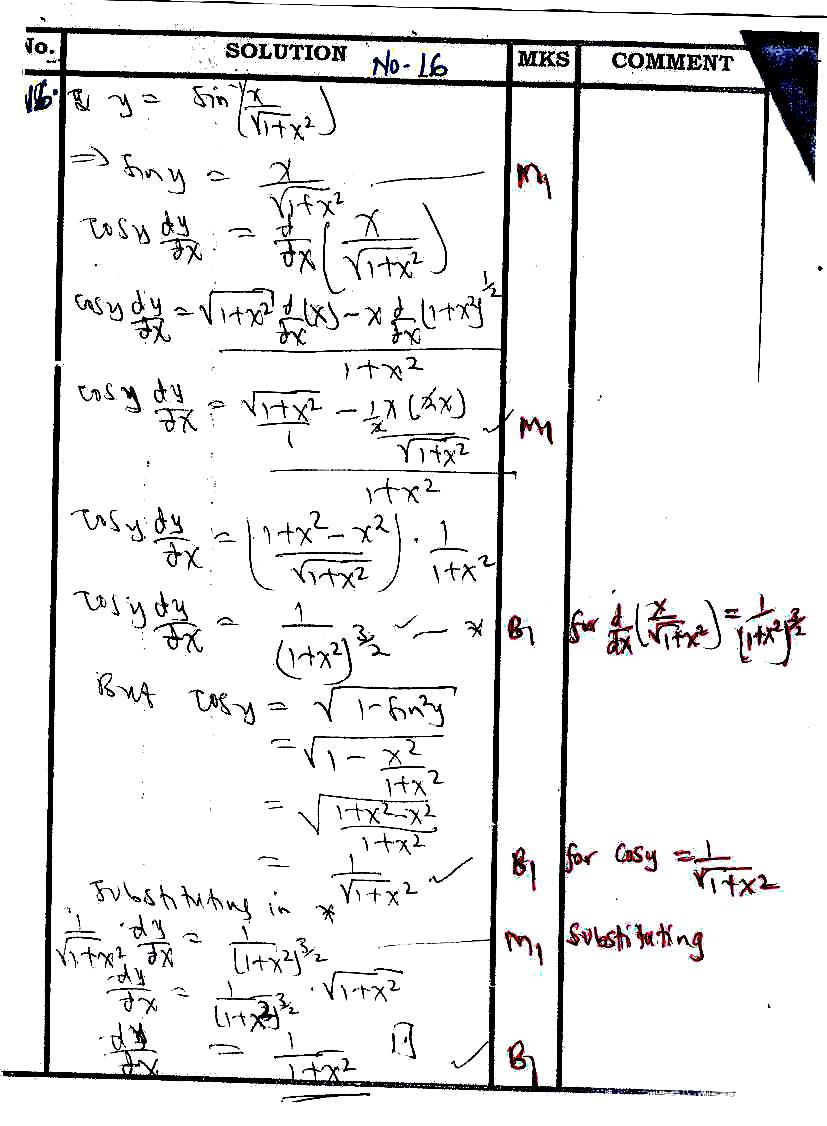 No. SOLUTION No-16 MKS COMMENT
16. y = sin⁻¹(x/√(1+x²))
=> sin y = x/√(1+x²) M1
cos y dy/dx = d/dx (x/√(1+x²))
cos y dy/dx = (√(1+x²) d/dx(x) - x d/dx (1+x²)^(1/2)) / (1+x²)
cos y dy/dx = (√(1+x²)/1 - ½x(2x)/√(1+x²)) / (1+x²) ✓ M1
cos y dy/dx = ((1+x²-x²)/√(1+x²)) · 1/(1+x²)
cos y dy/dx = 1/(1+x²)^(3/2) ✓ — * B1 for d/dx (x/√(1+x²)) = 1/(1+x²)^(3/2)
But cos y = √(1-sin²y)
= √(1 - x²/(1+x²))
= √((1+x²-x²)/(1+x²))
= 1/√(1+x²) ✓ B1 for cos y = 1/√(1+x²)
Substituting in *
1/√(1+x²) · dy/dx = 1/(1+x²)^(3/2) M1 Substituting
dy/dx = 1/(1+x²)^(3/2) · √(1+x²)
dy/dx = 1/(1+x²) ✓ B1